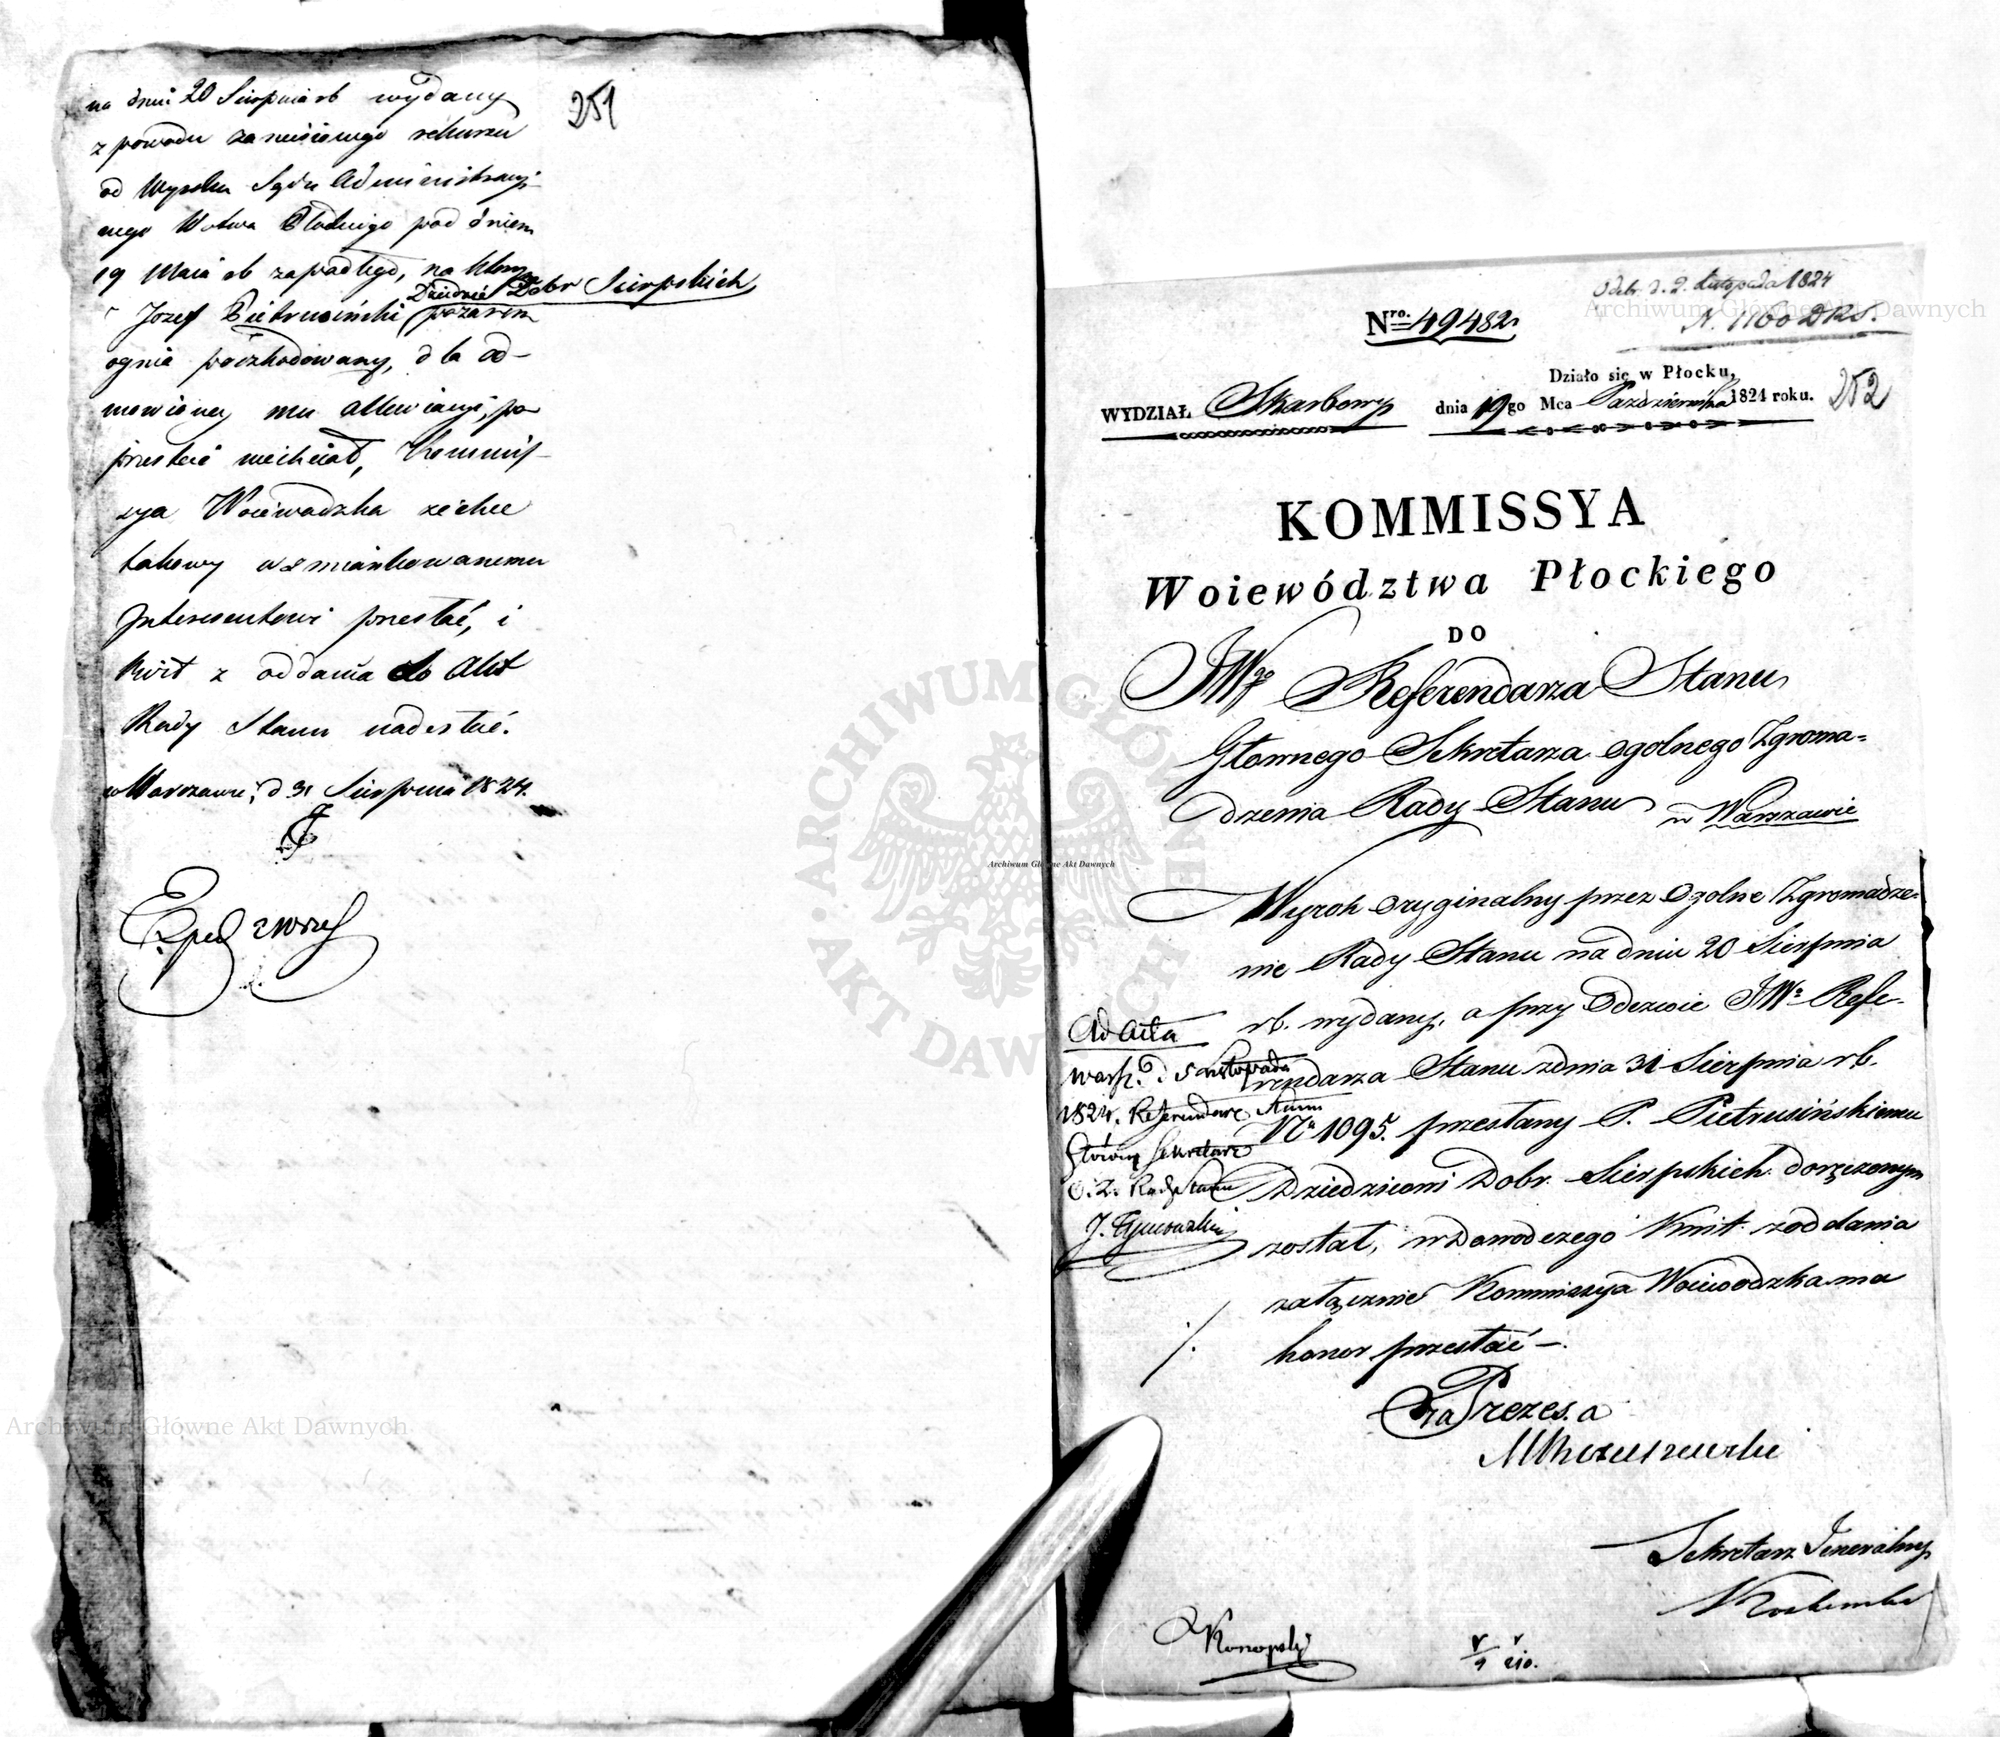 251
na dniu 20 Sierpnia rb wydany
z powodu zaniesionego rekursu
od Wyroku Sądu Administracyi-
nego Wdztwa Płockiego pod dniem
19 Maia rb zapadłego, na którym
Józef Pietrusiński Dziedzic Dobr Sierpskich pożarem
ognia poszkodowany, dla od-
mowioney mu allewiacyi, po
przestać niechciał, Kommis-
sya Woiewodzka zechce
takowy wzmiankowanemu
Interesentowi przesłać, i
kwit z oddania do Akt
Rady Stanu nadesłać.
w Warszawie, d 31 Sierpnia 1824.
Odebr. d. 2. Listopada 1824
N. 1160 DRS.
Nro. 49482.
Działo się w Płocku,
WYDZIAŁ Skarbowy dnia 19go Mca Października 1824 roku.
252
KOMMISSYA
Woiewództwa Płockiego
DO
JWgo Referendarza Stanu
Głownego Sekretarza Ogolnego Zgroma=
dzenia Rady Stanu w Warszawie
Wyrok Oryginalny przez Ogolne Zgromadze-
nie Rady Stanu na dniu 20 Sierpnia
rb. wydany, a przy Odezwie JWo Refe-
rendarza Stanu z dnia 31 Sierpnia rb.
No 1095. przesłany P. Pietrusińskiemu
Dziedzicowi Dobr Sierpskich doręczonym
został, w dowod czego Kwit z oddania
załącznie Kommissya Woiewodzka ma
honor przesłać —.
Ad Acta
Warsz. d 5 Listopada
1824. Referendarz Stanu
Główny Sekretarz
O. Z. Rady Stanu
za Prezesa
Sekretarz Jeneralny
Konopski
Archiwum Główne Akt Dawnych
ARCHIWUM GŁÓWNE AKT DAWNYCH
Archiwum Główne Akt Dawnych
Archiwum Główne Akt Dawnych